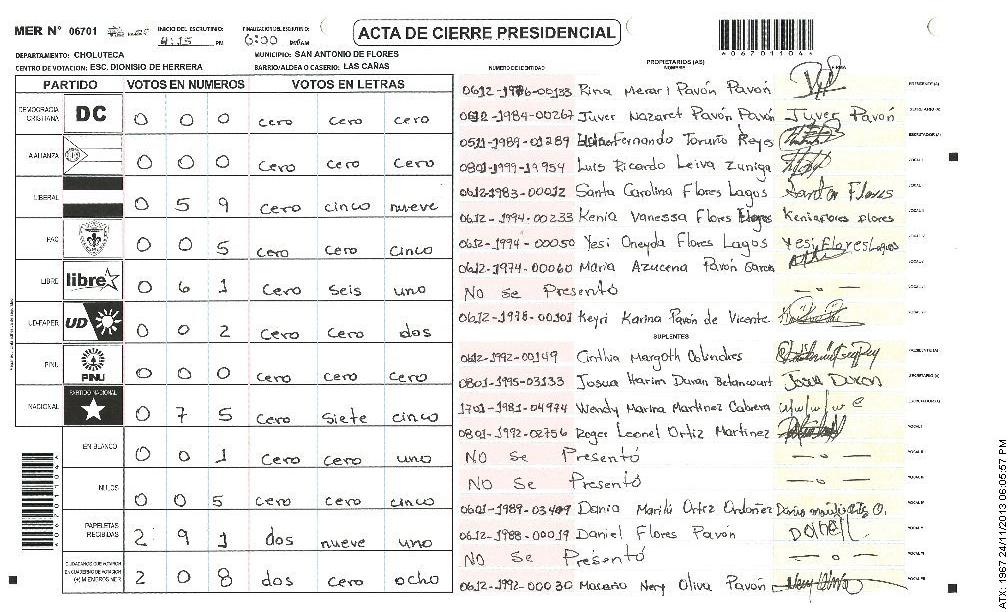 MER N° 06701
INICIO DEL ESCRUTINIO: 4:15 PM
FINALIZACION DEL ESCRUTINIO: 6:00
ACTA DE CIERRE PRESIDENCIAL
DEPARTAMENTO: CHOLUTECA
MUNICIPIO: SAN ANTONIO DE FLORES
CENTRO DE VOTACION: ESC. DIONISIO DE HERRERA
BARRIO/ALDEA O CASERIO: LAS CAÑAS
PARTIDO VOTOS EN NUMEROS VOTOS EN LETRAS
DEMOCRACIA CRISTIANA DC 0 0 0 cero cero cero
AALIANZA 0 0 0 cero cero cero
LIBERAL 0 5 9 cero cinco nueve
PAC 0 0 5 cero cero cinco
LIBRE libre 0 6 1 cero seis uno
UD-FAPER UD 0 0 2 cero cero dos
PINU PINU 0 0 0 cero cero cero
NACIONAL PARTIDO NACIONAL 0 7 5 cero siete cinco
EN BLANCO 0 0 1 cero cero uno
NULOS 0 0 5 cero cero cinco
PAPELETAS RECIBIDAS 2 9 1 dos nueve uno
CIUDADANOS QUE VOTARON EN CUADERNO DE VOTACION (+) MIEMBROS MER 2 0 8 dos cero ocho
NUMERO DE IDENTIDAD PROPIETARIOS (AS) NOMBRE FIRMA
0612-1976-00133 Rina Merari Pavón Pavón PRESIDENTE (A)
0612-1984-00267 Juver Nazaret Pavón Pavón Juver Pavón SECRETARIO (A)
0511-1989-01289 Fernando Toruño Reyes ESCRUTADOR (A)
0801-1999-19954 Luis Ricardo Leiva Zuniga VOCAL I
0612-1983-00012 Santa Carolina Flores Lagos Santa Flores
0612-1994-00233 Kenia Vanessa Flores Kenia flores flores
0612-1994-00050 Yesi Oneyda Flores Lagos Yesi Flores Lagos
0612-1974-00060 Maria Azucena Pavón Garcia
No Se Presentó
0612-1978-00101 Keyri Karina Pavón de Vicente
SUPLENTES
0612-1992-00149 Cinthia Margoth PRESIDENTE (A)
0801-1995-03133 Josua Harim Duran Betancourt Josua Duron SECRETARIO (A)
1701-1981-04974 Wendy Marina Martinez Cabrera ESCRUTADOR (A)
0801-1992-02756 Roger Leonel Ortiz Martinez VOCAL I
No Se Presentó
No Se Presentó
0601-1989-03409 Dania Marilú Ortiz Ordoñez
0612-1988-00019 Daniel Flores Pavón
No Se Presentó
0612-1992-00030 Macario Nery Oliva Pavón Nery Oliva
*06701104*
ATX: 1967 24/11/2013 06:05:57 PM